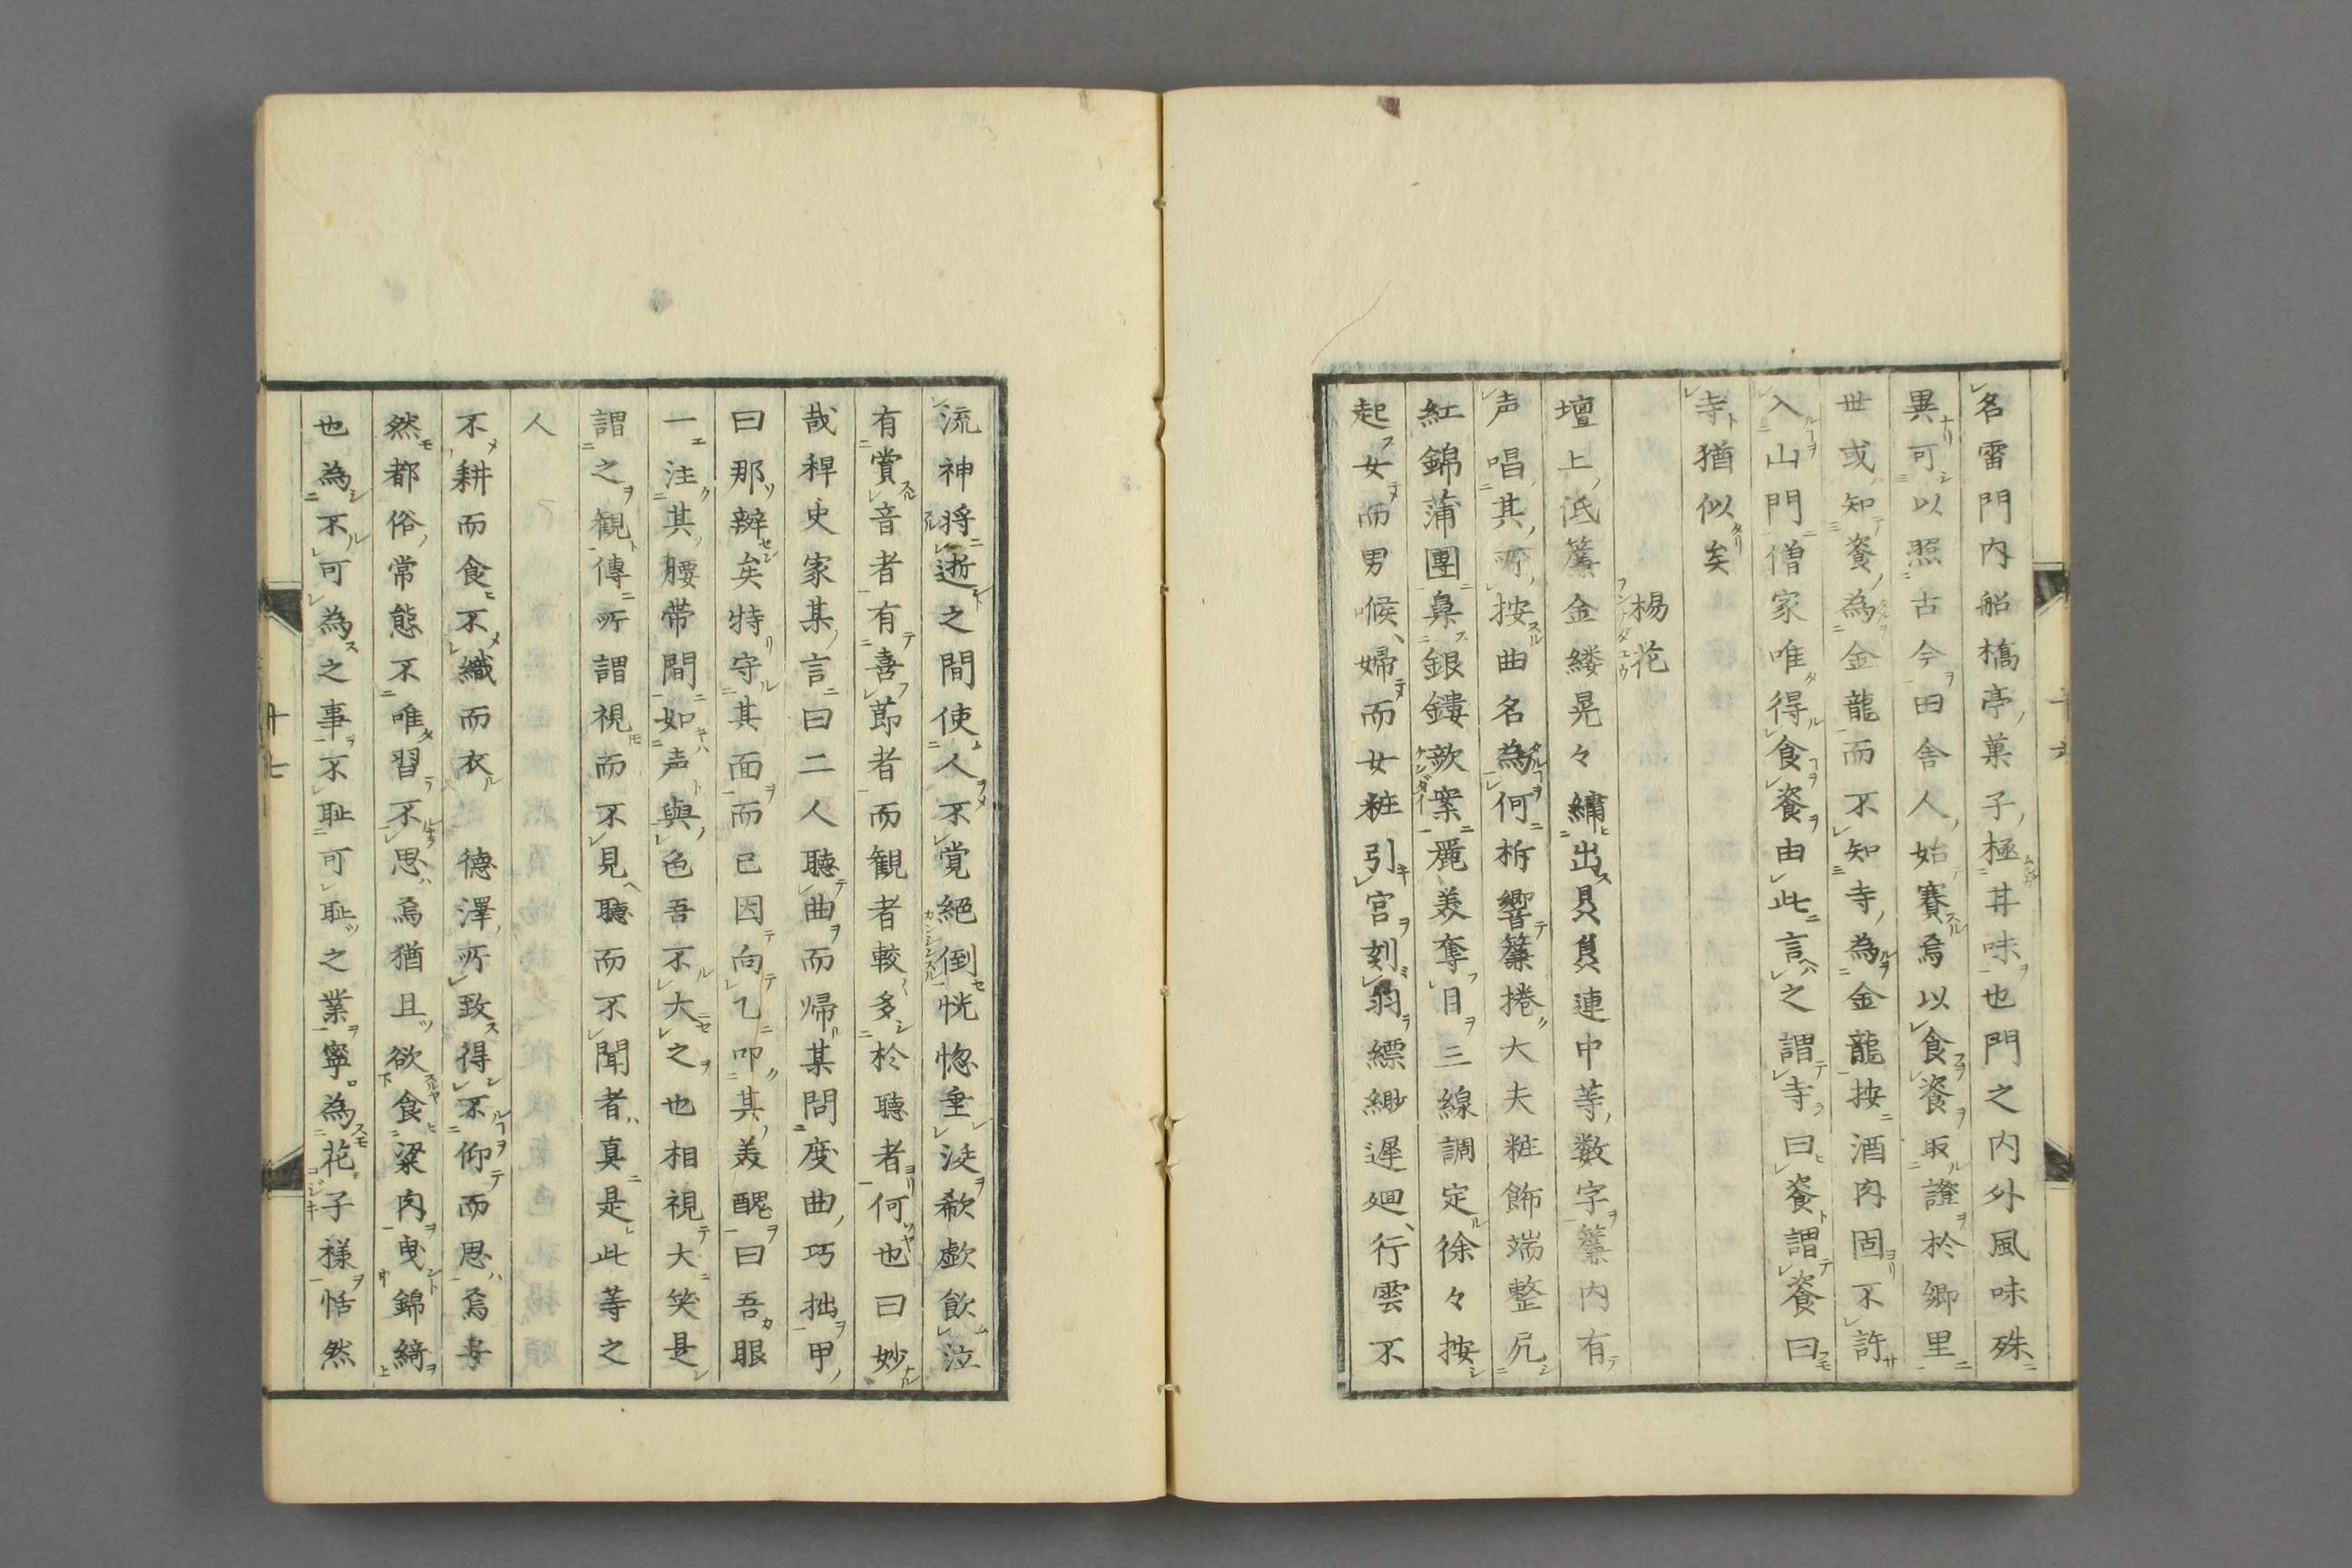 名雷門内船橋亭菓子極井味也門之内外風味殊
異可以照古今田舎人始賽焉以食餈取證於郷里
世或知餈為金龍而不知寺為金龍按酒肉固不許
入山門僧家唯得食餈由此言之謂寺曰餈謂餈曰
寺猶似矣
楊花
壇上低簾金縷晃々繡出貝負連中等数字簾内有
声唱其所按曲名為何柝響簾捲大夫粧飾端整尻
紅錦蒲團鼻銀鏤歊案麗美奪目三線調定徐々按
起女而男喉婦而女粧引宮刻羽縹緲遲廻行雲不
十六
流神将逝之間使人不覚絕倒恍惚垂涎欷歔飲泣
有賞音者有喜節者而観者較多於聽者何也曰妙
哉稗史家某言曰二人聽曲而帰某問度曲巧拙甲
曰那辨矣特守其面而已因向乙叩其美醜曰吾眼
一注其腰帯間如声與色吾不大之也相視大笑是
謂之観傳所謂視而不見聽而不聞者真是此等之
人
不耕而食不織而衣 德澤所致得不仰而思焉夫
然都俗常態不唯習不思焉猶且欲食粱肉曳錦綺
也為不可為之事不耻可耻之業寧為花子様恬然
十七